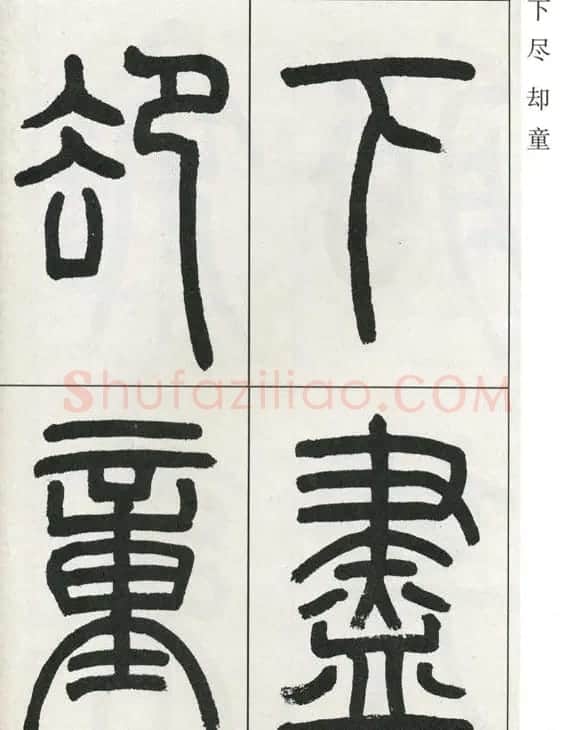 下尽 却童
下盡
卻童
Shufaziliao.COM